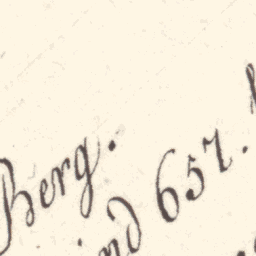 Berg.
nd 657.